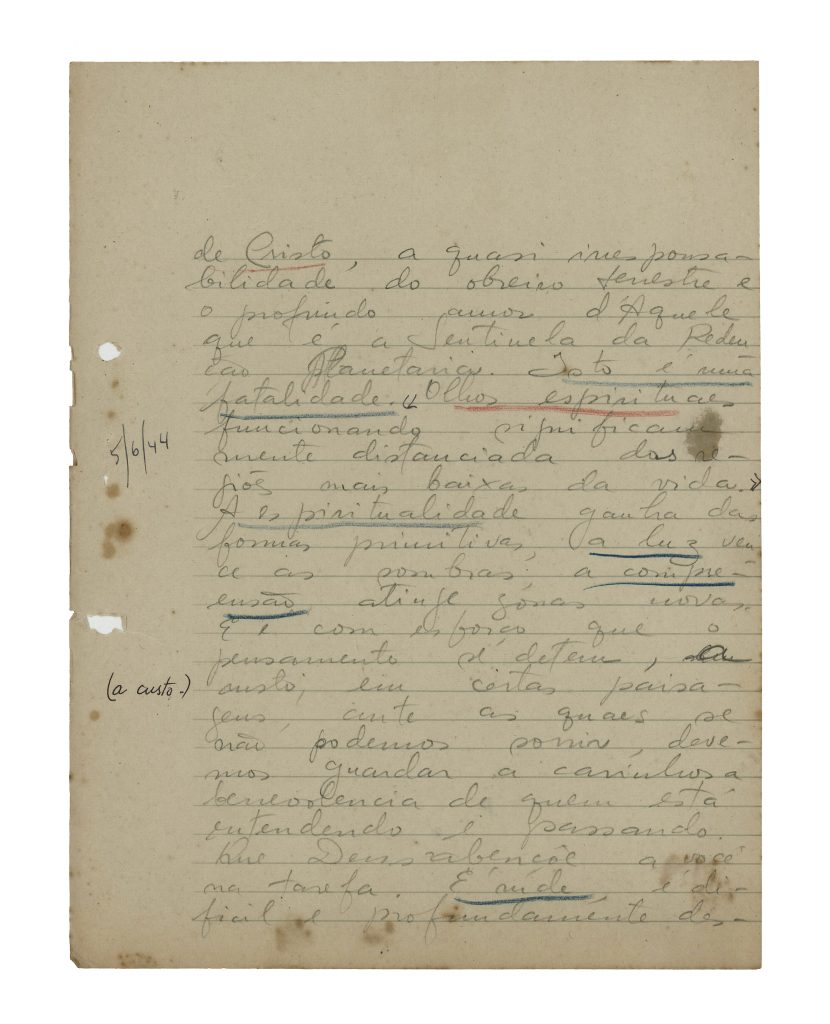 de Cristo, a quasi irresponsa-
bilidade do obreiro terrestre e
o profundo amor d'Aquele
que é a Sentinela da Reden
ção Planetaria. Isto é uma
fatalidade. Olhos espirituaes
funcionando significam
mente distanciada das re-
giões mais baixas da vida.
A espiritualidade ganha das
formas primitivas, a luz ven
ce as sombras, a compre-
ensão atinge zonas novas.
E é com esforço que o
pensamento se detem, a
custo, em certas paisa-
gens, ante as quaes, se
não podemos sorrir, deve-
mos guardar a carinhosa
benevolencia de quem está
entendendo e passando.
Que Deus abençôe a você
na tarefa. É rude, é di-
ficil e profundamente des-
5/6/44
(a custo-)